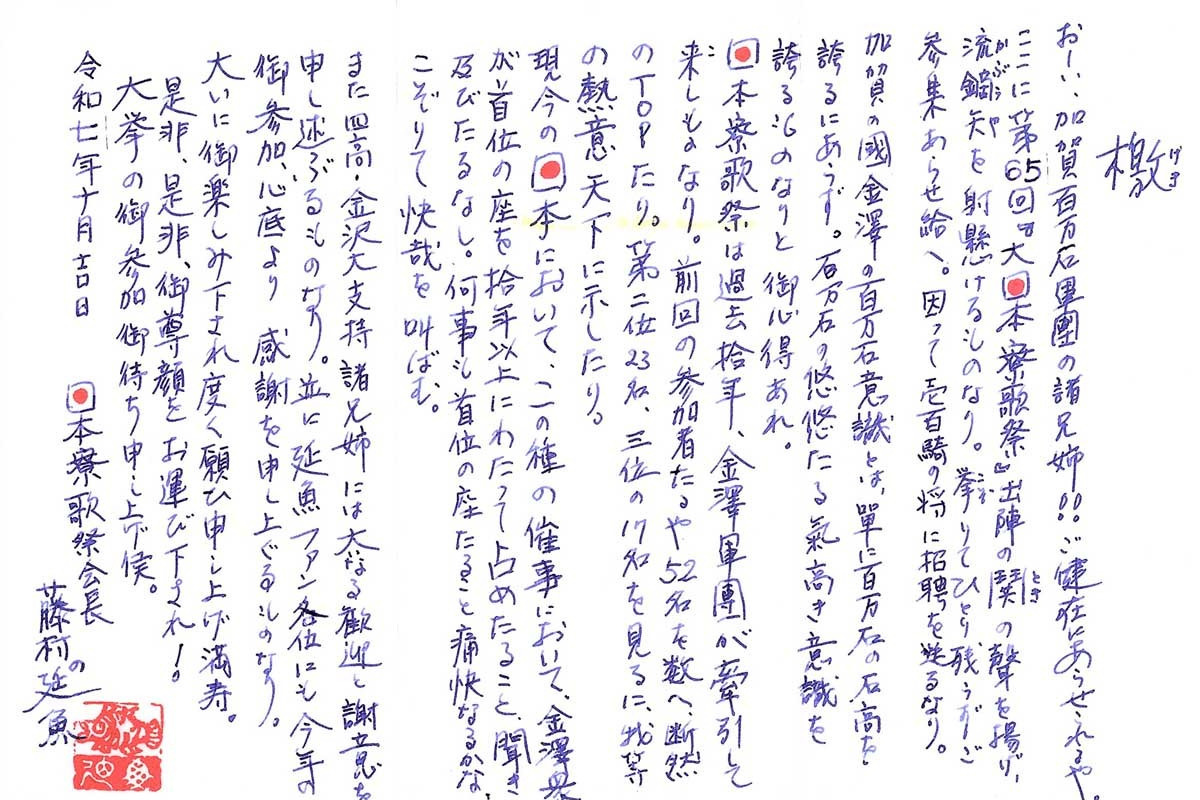 檄
げき
おーい、加賀百万石軍團の諸兄姉!! ご健在にあらせれるや。
ここに第65回『大日本寮歌祭』出陣の鬨の聲を揚げ、
流鏑矢を射懸けるものなり。挙りてひとり残らずご
参集あらせ給へ。因って壱百騎の将に招聘を送るなり。
加賀の國金澤の百万石意識とは、單に百万石の石高を
誇るにあらず。百万石の悠悠たる氣高き意識を
誇るものなりと 御心得あれ。
日本寮歌祭は過去拾年、金澤軍團が牽引して
来しものなり。前回の参加者たるや52名を数へ、断然
のTOPたり。第二位23名、三位の17名を見るに、我等
の熱意 天下に示したり。
現今の日本において、この種の催事において、金澤衆
が首位の座を拾年以上にわたって占めたること、聞き
及びたるなし。何事も首位の座たること痛快なるかな
こぞりて快哉を叫ばむ。
また四高・金沢大支持諸兄姉には大なる歓迎と謝意を
申し述ぶるものなり。並に延魚ファン各位にも今年の
御参加、心底より 感謝を申し上ぐるものなり。
大いに御楽しみ下され度く願ひ申し上げ満寿。
是非、是非、御尊顔をお運び下され!
大挙の御参加御待ち申し上げ候。
令和七年十月吉日
日本寮歌祭会長
藤村の延魚